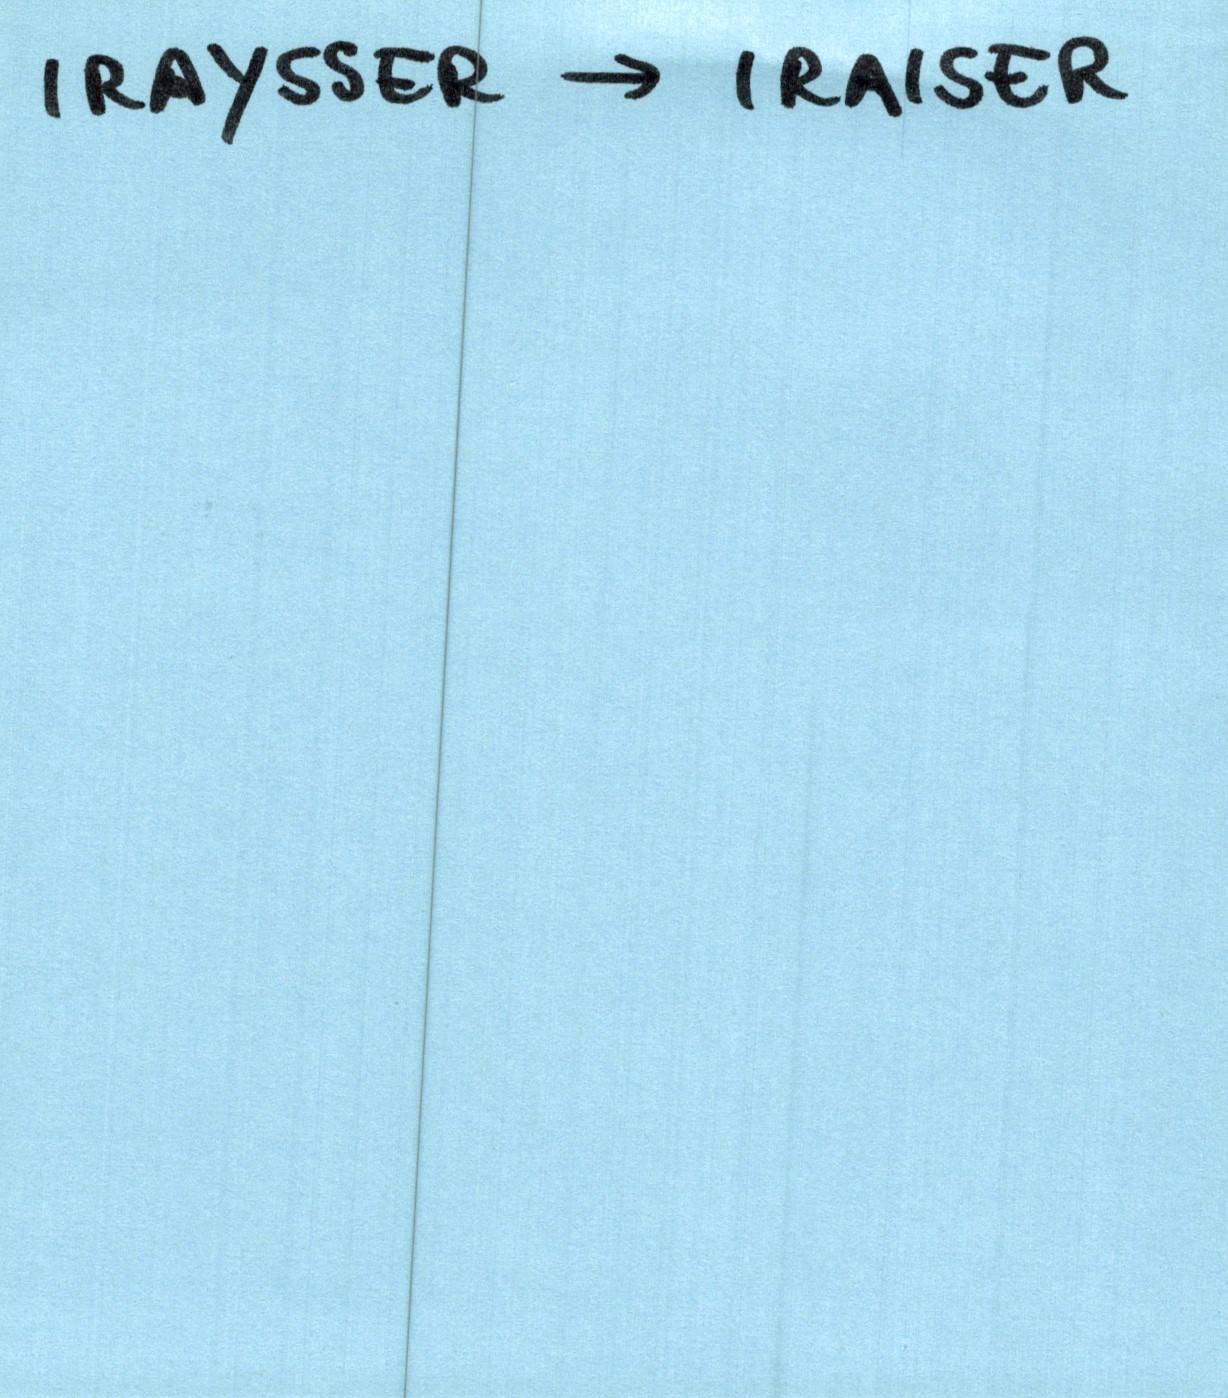 IRAYSSER → IRAISER